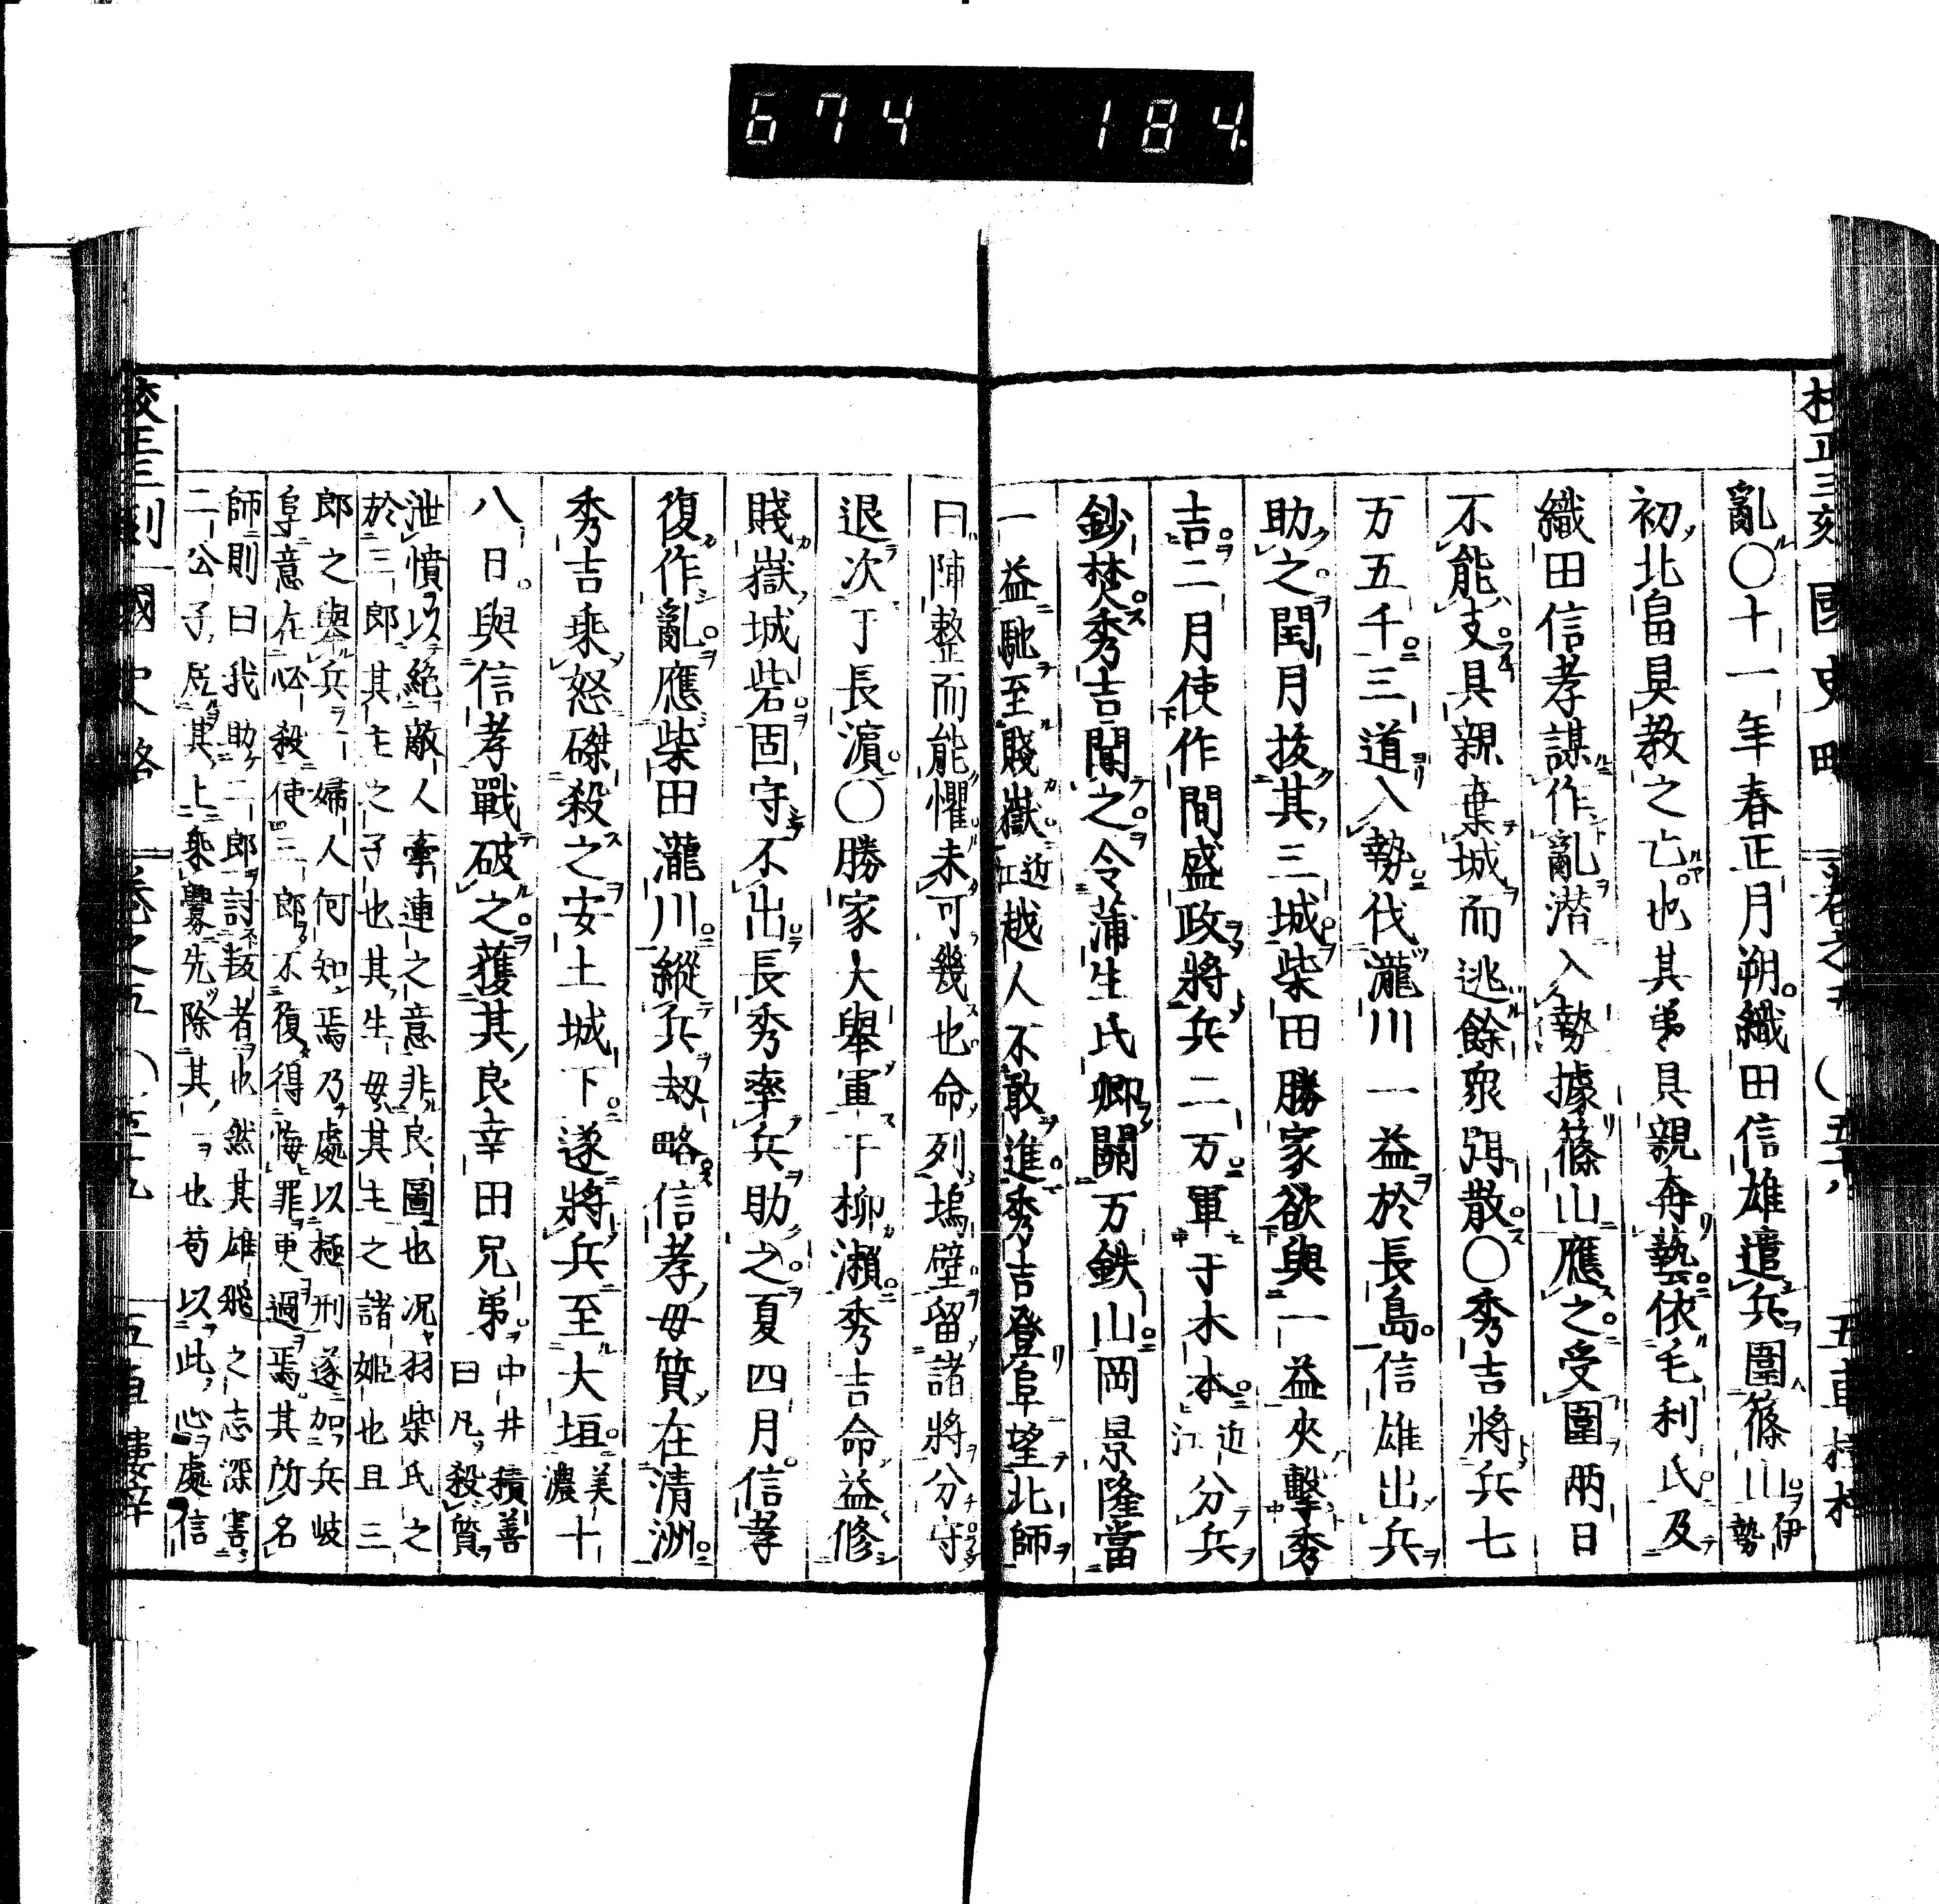 674 184.
國史略
亂〇十一年春正月朔織田信雄遣兵圍篠山伊勢
初北畠具教之亡也其弟具親奔藝依毛利氏及
織田信孝謀作亂潛入勢據篠山應之受圍兩日
不能支具親棄城而逃餘衆弭散〇秀吉將兵七
万五千三道入勢伐瀧川一益於長島信雄出兵
助之閏月拔其三城柴田勝家欲與一益夾擊秀
吉二月使作間盛政將兵二万軍于木本近江分兵
鈔焚秀吉聞之令蒲生氏卿關万鉄山岡景隆當
一益馳至賤嶽近江越人不敢進秀吉登阜望北師
曰陣整而能懼未可幾也命列塢壁留諸將分守
退次于長濵〇勝家大舉軍于柳瀨秀吉命益修
賤嶽城砦固守不出長秀率兵助之夏四月信孝
復作亂應柴田瀧川縱兵刼略信孝母質在清洲
秀吉乘怒磔殺之安土城下遂將兵至大垣美濃十
八日與信孝戰破之獲其良幸田兄弟中井積善曰凡殺質
泄憤以絕敵人牽連之意非良圖也况羽柴氏之
於三郎其主之子也其生母其主之諸姬也且三
郎之舉兵一婦人何知焉乃處以極刑遂加兵岐
阜意在必殺使三郎不復得悔罪更過焉其所名
師則曰我助二郎討叛者也然其雄飛之志深害
二公子居其上乘釁先除其一也苟以此心處信
國史略 卷之五